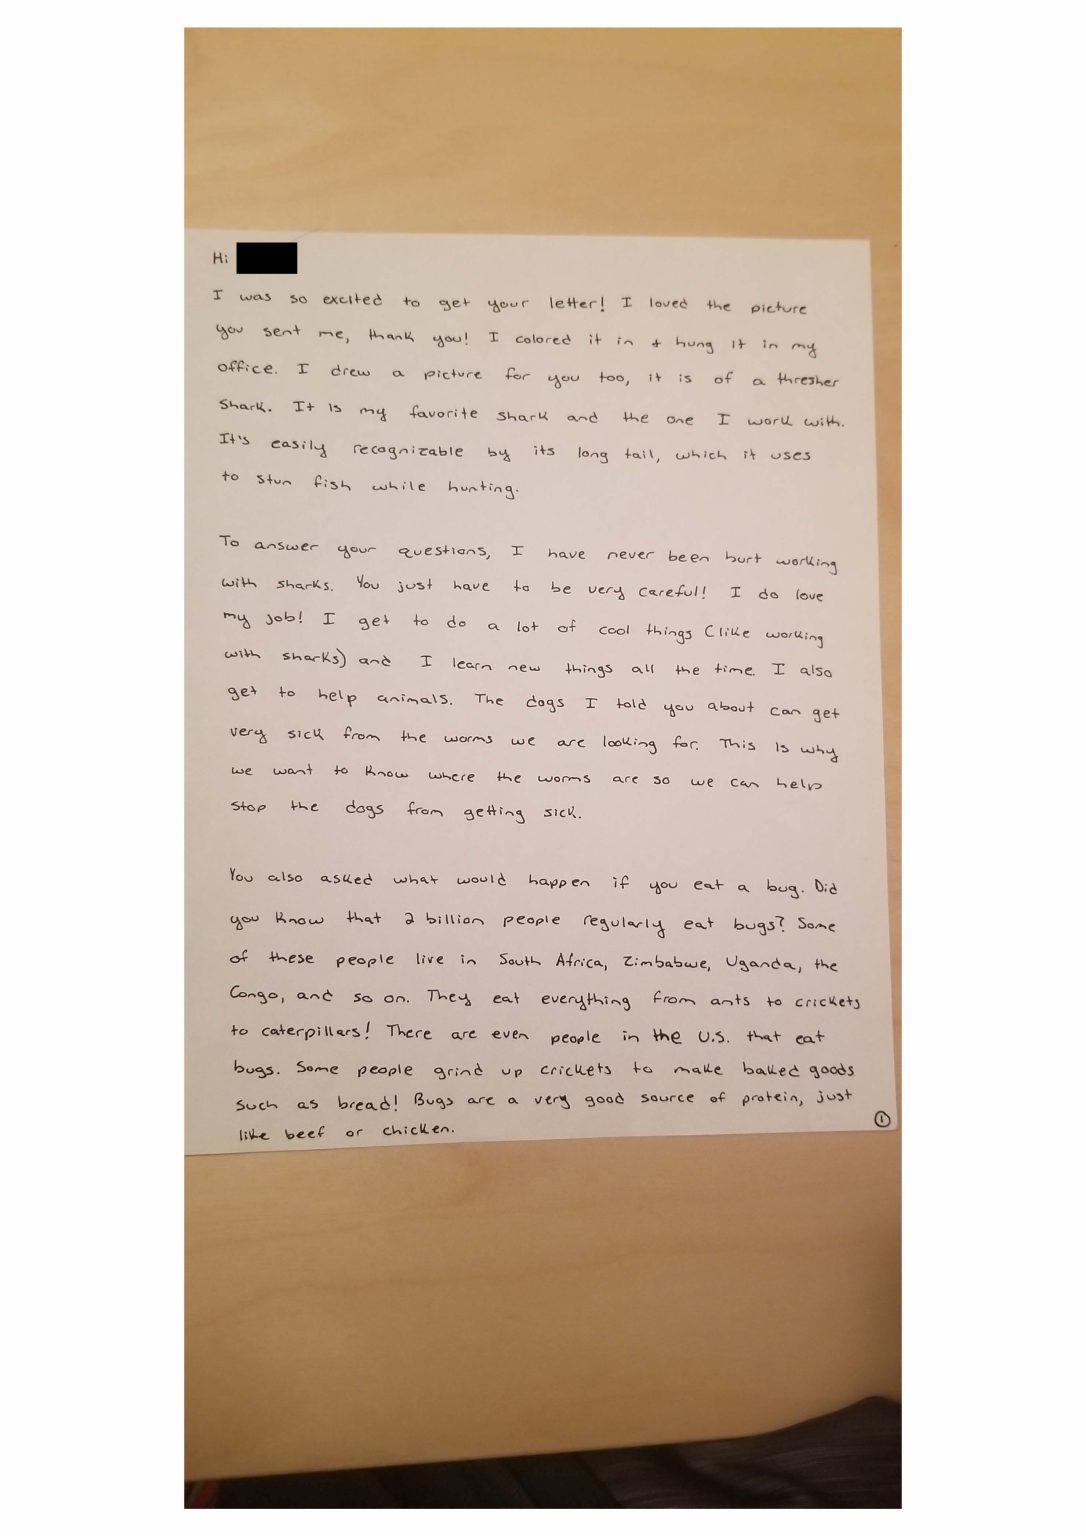 Hi
I was so excited to get your letter! I loved the picture
you sent me, thank you! I colored it in + hung it in my
office. I drew a picture for you too, it is of a thresher
shark. It is my favorite shark and the one I work with.
It's easily recognizable by its long tail, which it uses
to stun fish while hunting.
To answer your questions, I have never been hurt working
with sharks. You just have to be very careful! I do love
my job! I get to do a lot of cool things (like working
with sharks) and I learn new things all the time. I also
get to help animals. The dogs I told you about can get
very sick from the worms we are looking for. This is why
we want to know where the worms are so we can help
stop the dogs from getting sick.
You also asked what would happen if you eat a bug. Did
you know that 2 billion people regularly eat bugs? Some
of these people live in South Africa, Zimbabwe, Uganda, the
Congo, and so on. They eat everything from ants to crickets
to caterpillars! There are even people in the U.S. that eat
bugs. Some people grind up crickets to make baked goods
such as bread! Bugs are a very good source of protein, just
like beef or chicken.
1